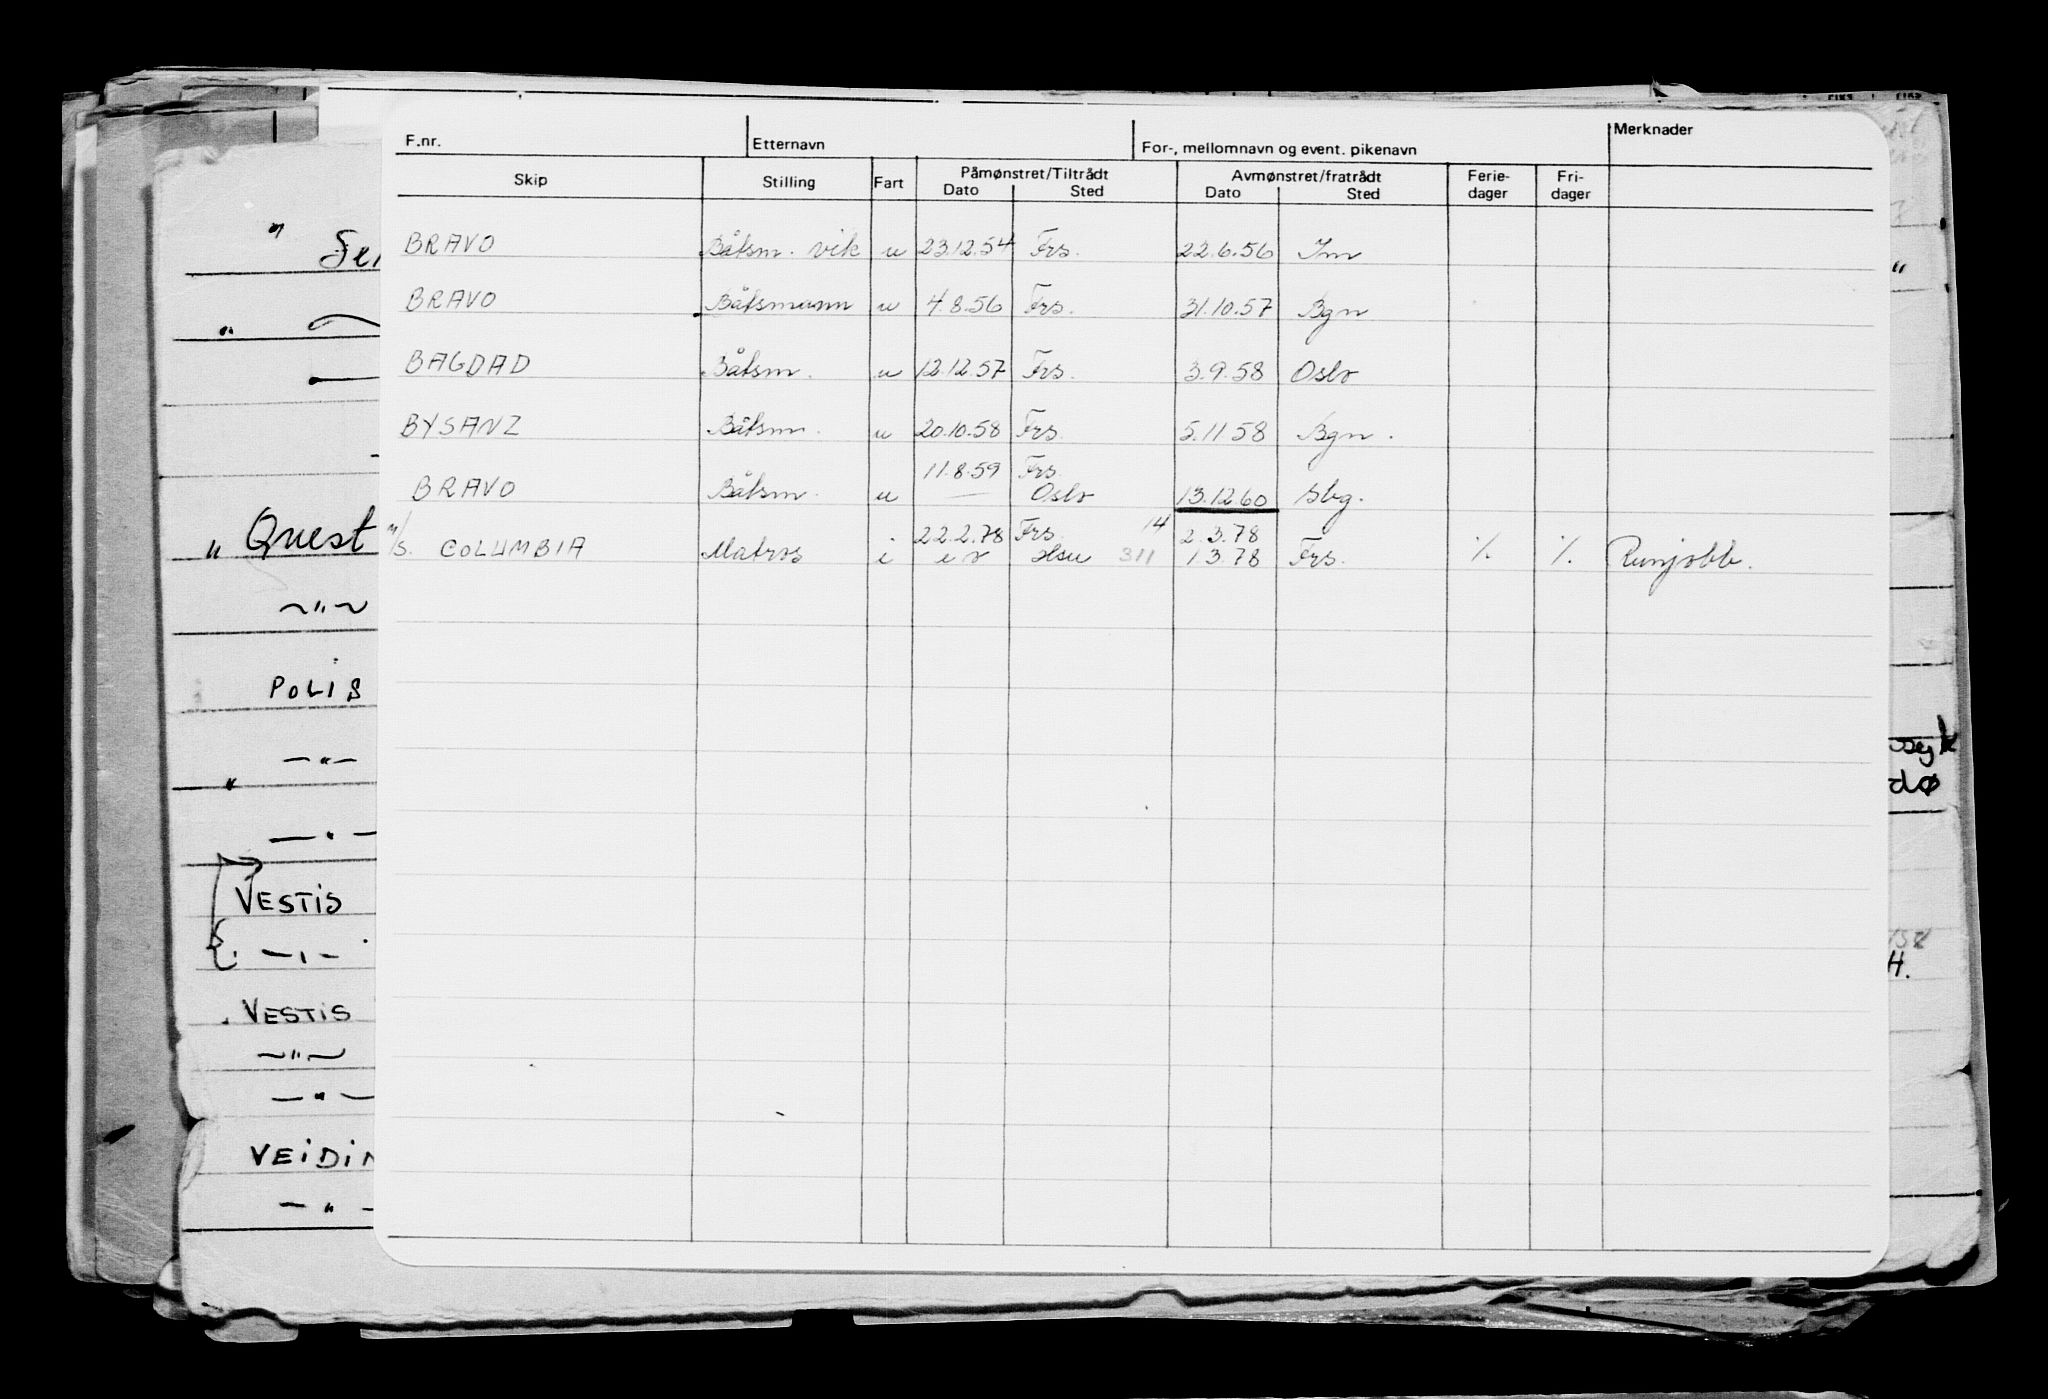 F.nr. Etternavn For-, mellomnavn og event. pikenavn Merknader
Skip Stilling Fart Påmønstret/Tiltrådt Avmønstret/fratrådt Ferie- Fri-
Dato Sted Dato Sted dager dager
BRAVO Båtsm. vik u 23.12.54 Frs. 22.6.56 Im
BRAVO Båtsmann u 4.8.56 Frs. 31.10.57 Bgn
BAGDAD Båtsm. u 12.12.57 Frs. 3.9.58 Oslo
BYSANZ Båtsm. u 20.10.58 Frs. 5.11 58 Bgn.
11.8.59 Frs.
BRAVO Båtsm. u — Oslo 13.12.60 Sbg.
22.2.78 Frs. 14 2.3.78
M/S. COLUMBIA Matros i Hsu 311 1.3.78 Frs. % %
" Quest
~"~
POLIS
— " —
— " —
VESTIS
VESTIS
~"~
— " —
VEIDIN
— " —
dø
H.